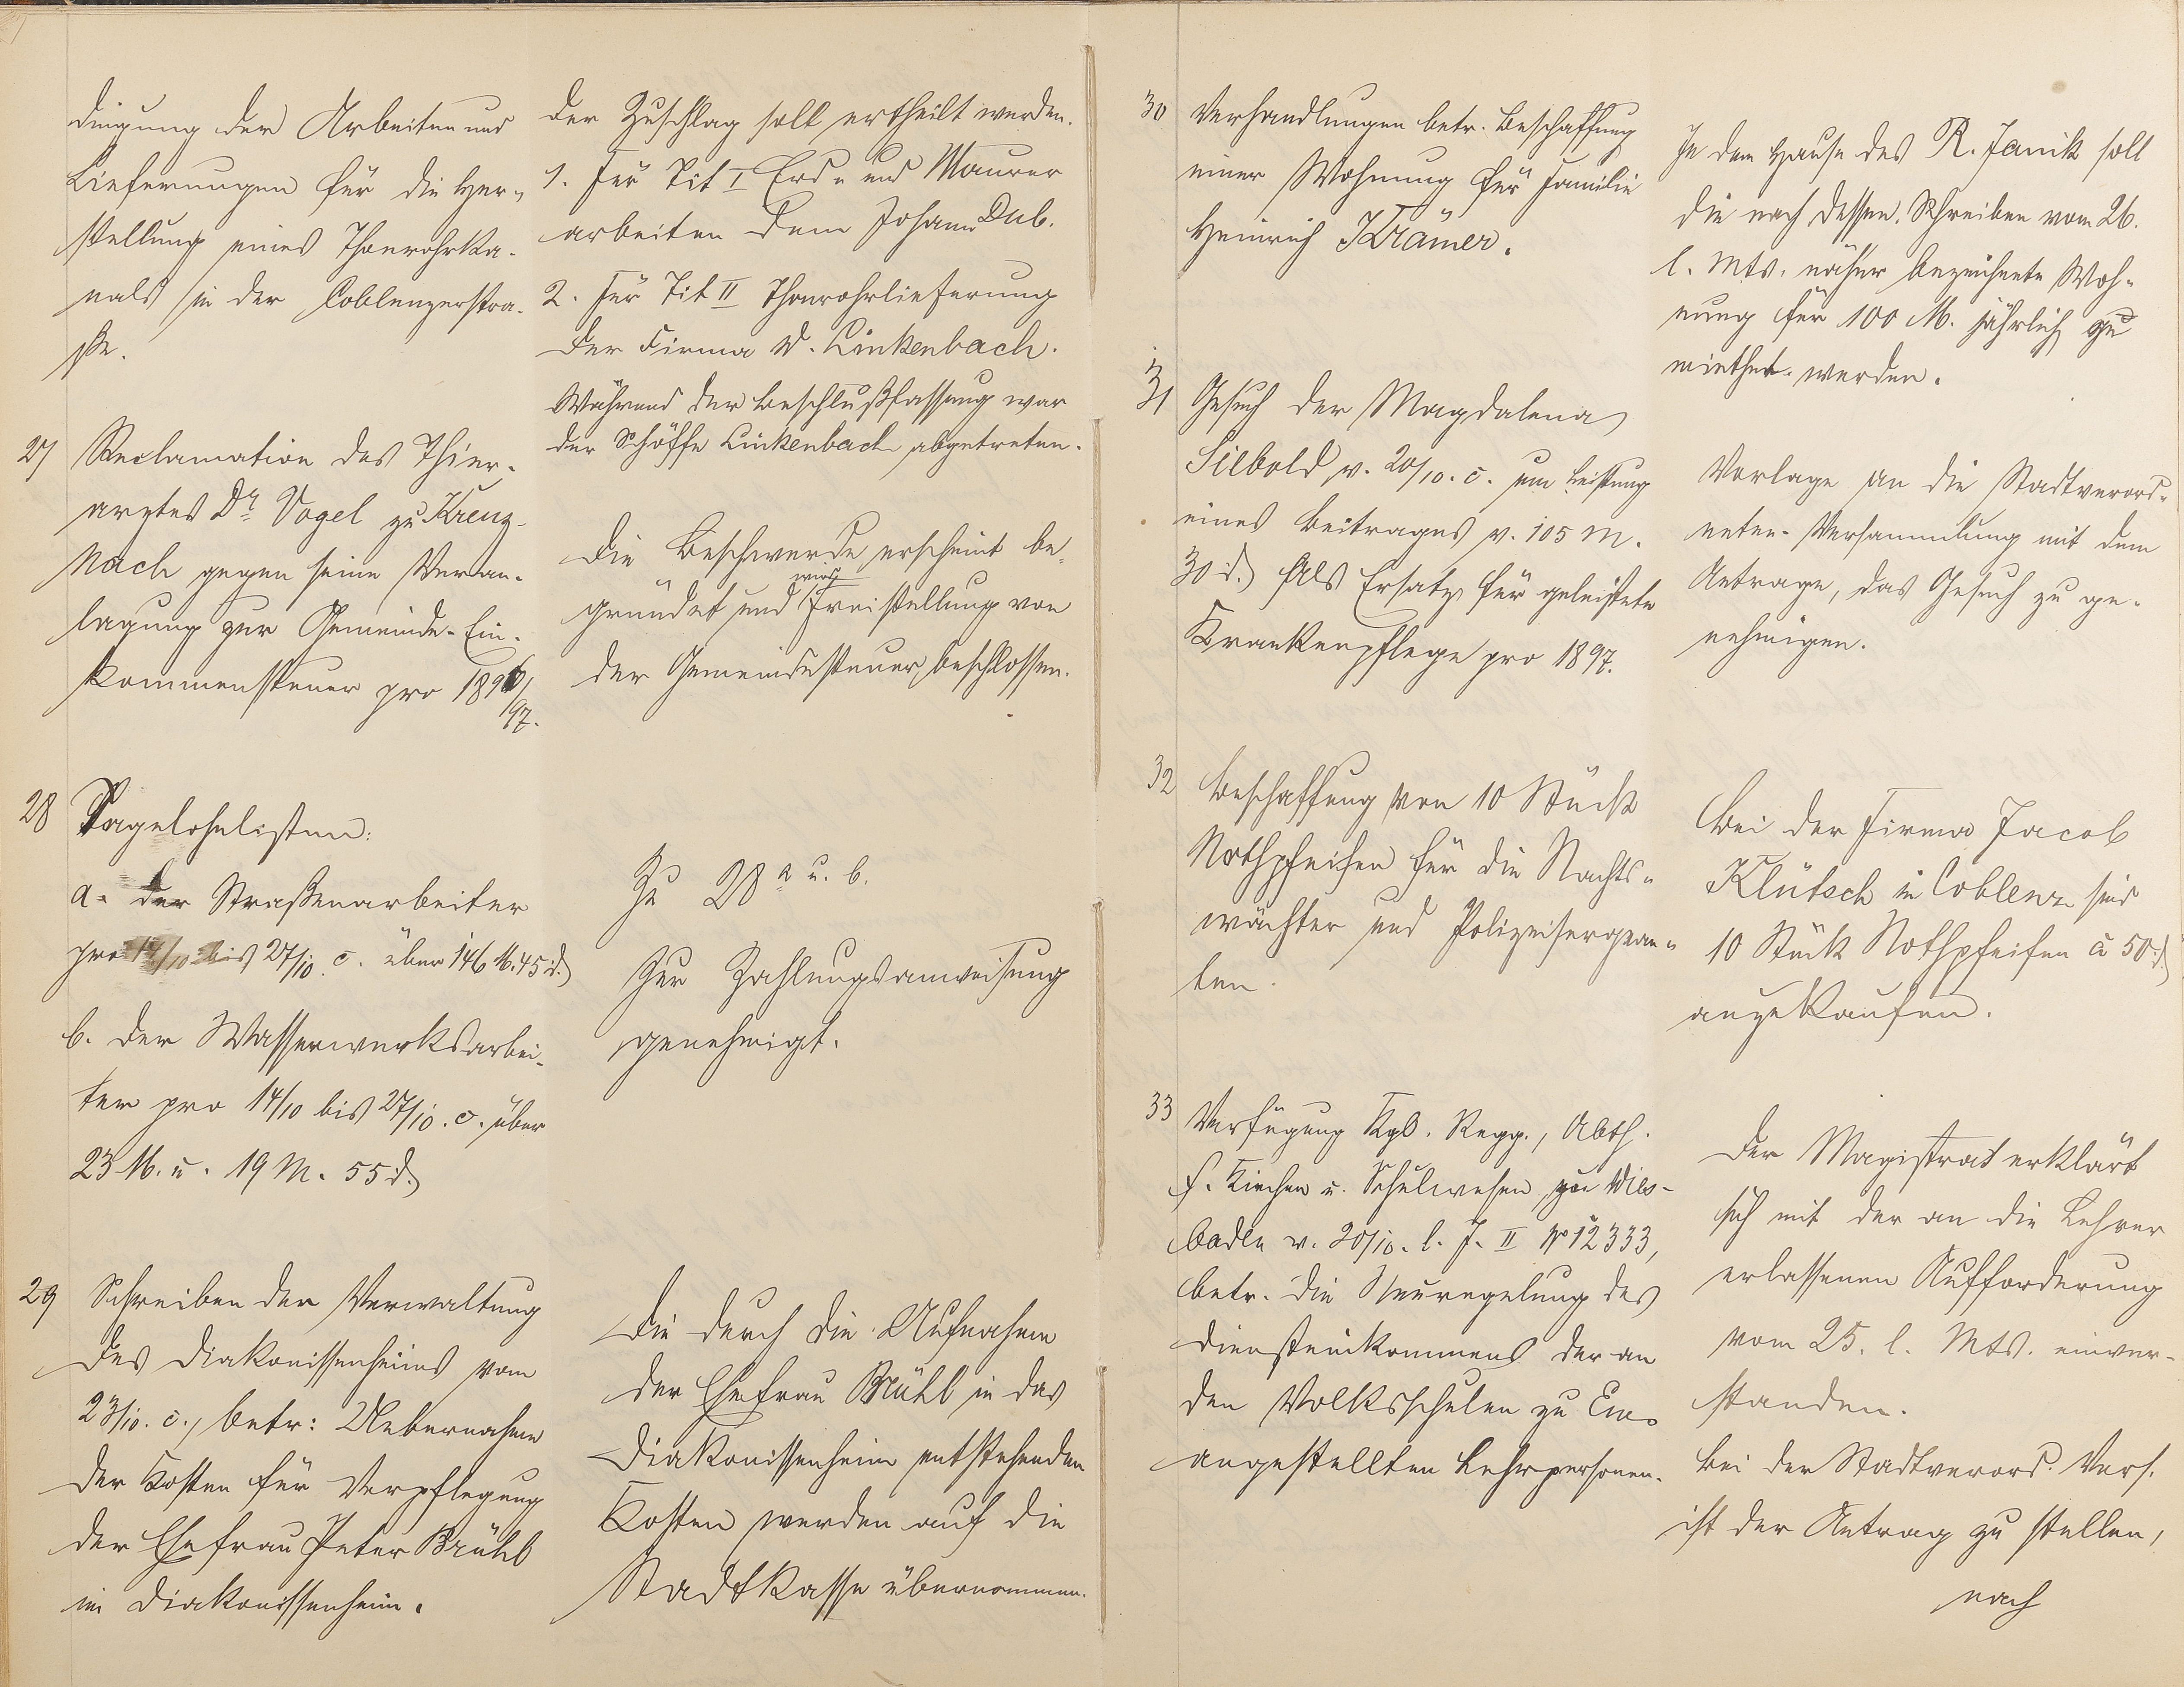 dingung der Arbeiten und
Lieferungen für die Her-
stellung eines Thonrohrka-
nals in der Coblenzerstra-
ße.
Der Zuschlag soll ertheilt werden.
1. Für Tit I Erd- und Maurer
arbeiten dem Johann Dub.
2. Für Tit II Thonrohrlieferung
der Firma W. Linkenbach.
Während der Beschlußfassung war
der Schöffe Linkenbach abgetreten.
27 Reclamation des Thier-
arztes Dr Vogel zu Kreuz-
nach gegen seine Veran-
lagung zur Gemeinde-Ein-
kommensteuer pro 1896/
97.
Die Beschwerde erscheint be-
gründet und wird Freistellung von
der Gemeindesteuer beschlossen.
28 Tagelohnlisten:
a. der Straßenarbeiter
pro 14/10 bis 27/10. c. über 146 M. 45 d.
b. der Wasserwerksarbei-
ter pro 14/10 bis 27/10. c. über
23 M. u. 19 M. 55 d.
Zu 28 a u. b.
Zur Zahlungsanweisung
genehmigt.
29 Schreiben der Verwaltung
des Diakonissenheims vom
23/10. c., betr: Uebernahme
der Kosten für Verpflegung
der Ehefrau Peter Brühl
im Diakonissenheim.
Die durch die Aufnahme
der Ehefrau Brühl in das
Diakonissenheim entstehenden
Kosten werden auf die
Stadtkasse übernommen.
30 Verhandlungen betr. Beschaffung
einer Wohnung für Familie
Heinrich Krämer.
In dem Hause des R. Janik soll
die nach dessen Schreiben vom 26.
l. Mts. näher bezeichnete Woh-
nung für 100 M. jährlich ge
miethet werden.
31 Gesuch der Magdalena
Silbold v. 20/10. c. um Leistung
eines Beitrages v. 105 M.
30 d. als Ersatz für geleistete
Krankenpflege pro 1897.
Vorlage an die Stadtverord-
neten-Versammlung mit dem
Antrage, das Gesuch zu ge-
nehmigen.
32 Beschaffung von 10 Stück
Nothpfeifen für die Nachts-
wächter und Polizeisergean-
ten.
Bei der Firma Jacob
Klütsch in Coblenz sind
10 Stück Nothpfeifen à 50 d.
anzukaufen.
33 Verfügung Kgl. Regg., Abth.
f. Kirchen u. Schulwesen zu Wies-
baden v. 20/10. l. J. II No 12333,
betr. die Neuregelung des
Diensteinkommens der an
den Volksschulen zu Ems
angestellten Lehrpersonen.
Der Magistrat erklärt
sich mit der an die Lehrer
erlassenen Aufforderung
vom 25. l. Mts. einver-
standen.
Bei der Stadtverord. Vers.
ist der Antrag zu stellen,
nach